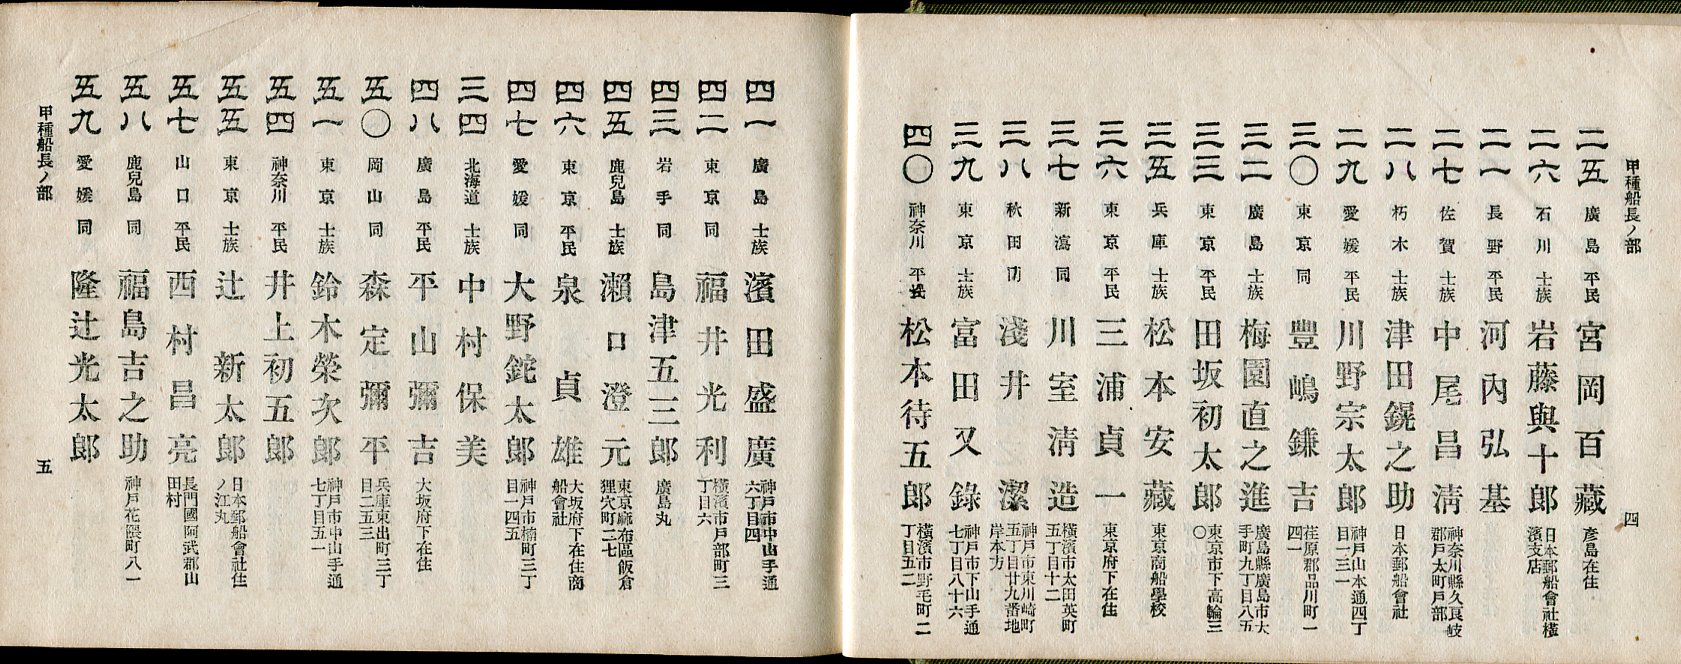 甲種船長ノ部
四
二五 廣島 平民 宮岡百藏 彦島在住
二六 石川 士族 岩藤與十郎 日本郵船會社橫濱支店
二一 長野 平民 河內弘基
二七 佐賀 士族 中尾昌淸 神奈川縣久良岐郡戸太町戸部
二八 栃木 士族 津田鎤之助 日本郵船會社
二九 愛媛 平民 川野宗太郎 神戸山本通四丁目一三一
三〇 東京 同 豐嶋鎌吉 荏原郡品川町一四一
三二 廣島 士族 梅園直之進 廣島縣廣島市大手町九丁目八五
三三 東京 平民 田坂初太郎 東京市下高輪三〇
三五 兵庫 士族 松本安藏 東京商船學校
三六 東京 平民 三浦貞一 東京府下在住
三七 新潟 同 川室淸造 橫濱市太田英町五丁目十二
三八 秋田 同 淺井潔 神戸市東川崎町五丁目廿九番地岸本方
三九 東京 士族 富田又錄 神戸市下山手通七丁目八十六
四〇 神奈川 平民 松本待五郎 橫濱市野毛町二丁目五二
四一 廣島 士族 濱田盛廣 神戸市中山手通六丁目四
四二 東京 同 福井光利 橫濱市戸部町三丁目六
四三 岩手 同 島津五三郎 廣島丸
四五 鹿兒島 士族 瀨口澄元 東京麻布區飯倉狸穴町二七
四六 東京 平民 泉貞雄 大坂府下在住商船會社
四七 愛媛 同 大野鉈太郎 神戸市楠町三丁目一四五
三四 北海道 士族 中村保美
四八 廣島 平民 平山彌吉 大坂府下在住
五〇 岡山 同 森定彌平 兵庫東出町三丁目二五三
五一 東京 士族 鈴木榮次郎 神戸市中山手通七丁目五一
五四 神奈川 平民 井上初五郎
五五 東京 士族 辻新太郎 日本郵船會社住ノ江丸
五七 山口 平民 西村昌亮 長門國阿武郡山田村
五八 鹿兒島 同 福島吉之助 神戸花隈町八一
五九 愛媛 同 隆辻光太郎
甲種船長ノ部
五